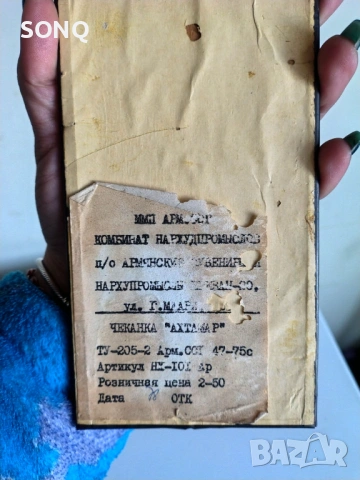 SONQ
ММП АРМ.ССР
КОМБИНАТ НАРХУДПРОМЫСЛОВ
п/о АРМЯНСКИЕ
НАРХУПРОМЫСЛЫ
ул.
ЧЕКАНКА "АХТАМАР"
ТУ-205-2 Арм.ССР 47-75с
Артикул НХ-101 Ар
Розничная цена 2-50
Дата ОТК
BAZAR
bg